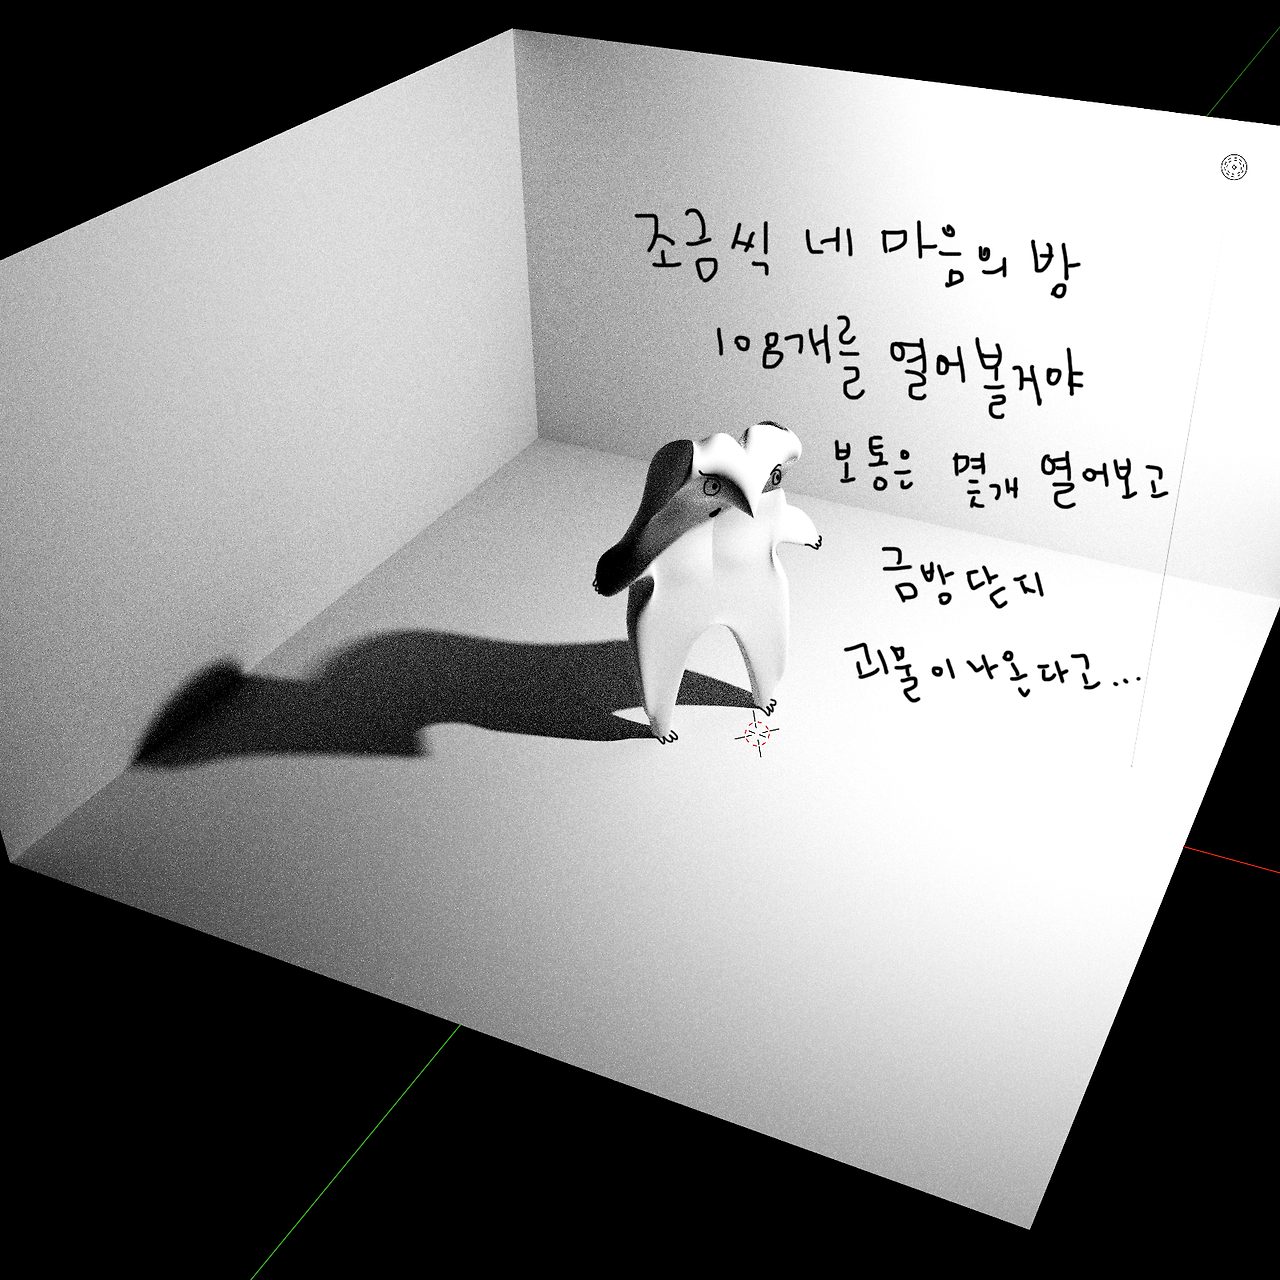 조금씩 네 마음의 방
108개를 열어볼거야
보통은 몇개 열어보고
금방 닫지
괴물이 나온다고...